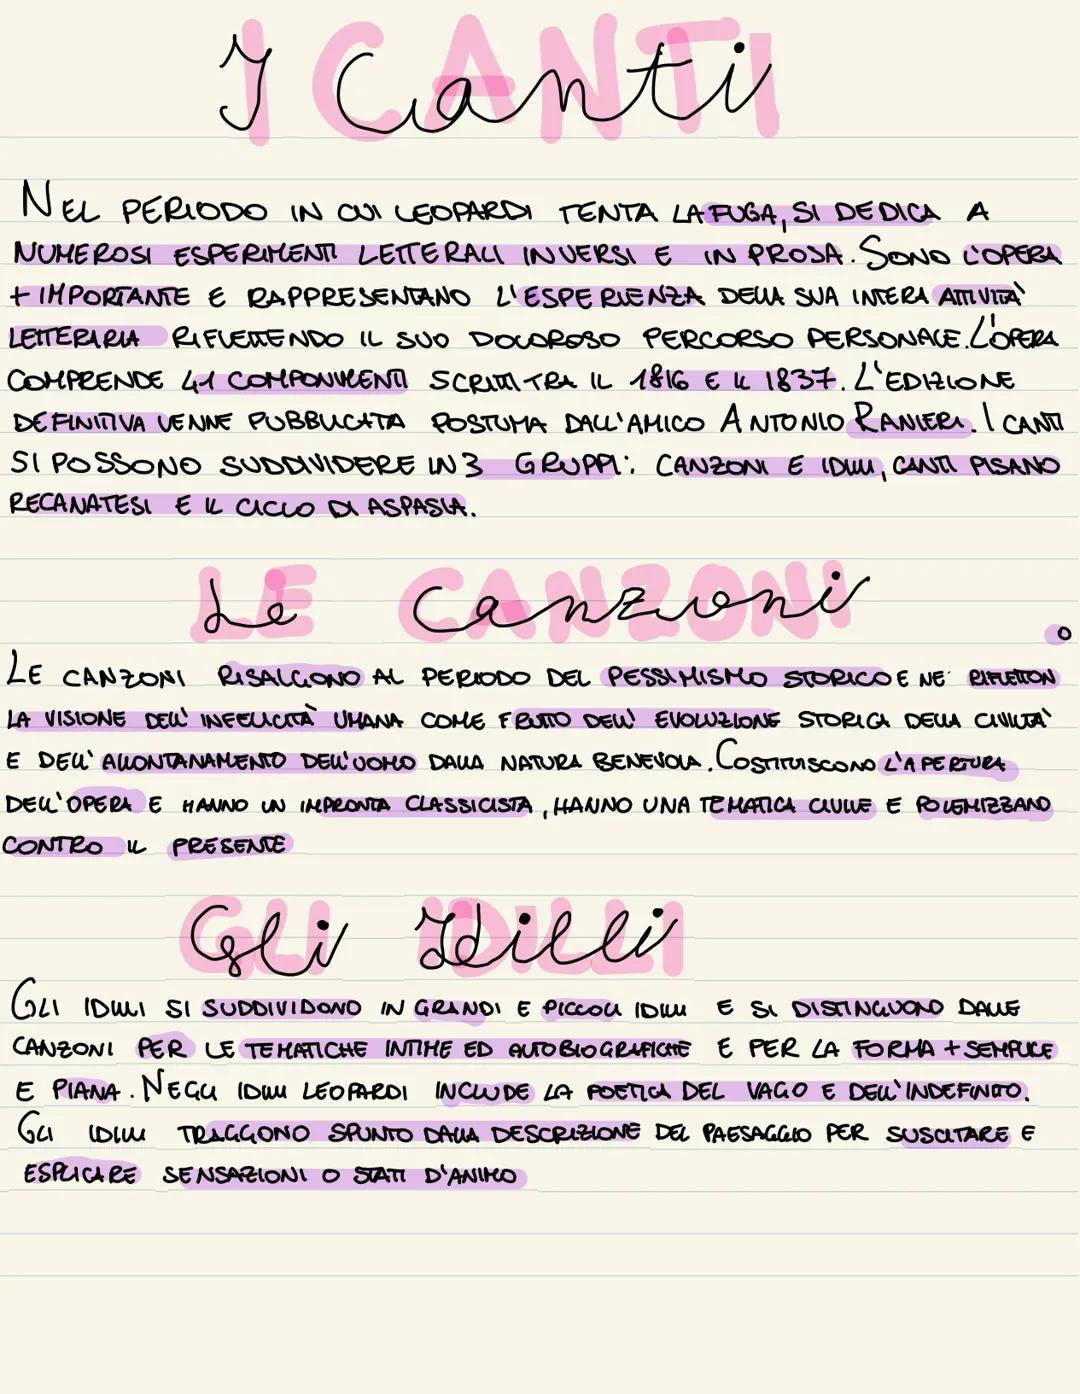 I Canti
NEL PERIODO IN CUI LEOPARDI TENTA LA FUGA, SI DEDICA A
NUMEROSI ESPERIMENTI LETTERALI IN VERSI E IN PROSA. SONO L'OPERA
+ IMPORTANTE E RAPPRESENTANO L'ESPERIENZA DELLA SUA INTERA ATTIVITÀ
LETTERARIA RIFLETTENDO IL SUO DOLOROSO PERCORSO PERSONALE. L'OPERA
COMPRENDE 41 COMPONIMENTI SCRITTI TRA IL 1816 E IL 1837. L'EDIZIONE
DEFINITIVA VENNE PUBBLICATA POSTUMA DALL'AMICO ANTONIO RANIERI. I CANTI
SI POSSONO SUDDIVIDERE IN 3 GRUPPI: CANZONI E IDILLI, CANTI PISANO
RECANATESI E IL CICLO DI ASPASIA.
Le Canzoni
LE CANZONI RISALGONO AL PERIODO DEL PESSIMISMO STORICO E NE RIFLETTON
O
LA VISIONE DELL'INFELICITÀ UMANA COME FRUTTO DELL'EVOLUZIONE STORICA DELLA CIVILTA'
E DELL'ALLONTANAMENTO DELL'UOMO DALLA NATURA BENEVOLA. COSTITUISCONO L'APERTURA
DELL'OPERA E HANNO UN IMPRONTA CLASSICISTA, HANNO UNA TEMATICA CIVILE E POLEMIZZANO
CONTRO IL PRESENTE
Gli Idilli
GLI IDILLI SI SUDDIVIDONO IN GRANDI E PICCOLI IDILLI E SI DISTINGUONO DALLE
CANZONI PER LE TEMATICHE INTIME ED AUTOBIOGRAFICHE E PER LA FORMA + SEMPLICE
E PIANA. NEGLI IDILLI LEOPARDI INCLUDE LA POETICA DEL VAGO E DELL'INDEFINITO.
GLI IDILLI TRAGGONO SPUNTO DALLA DESCRIZIONE DEL PAESAGGIO PER SUSCITARE E
ESPLICARE SENSAZIONI O STATI D'ANIMO